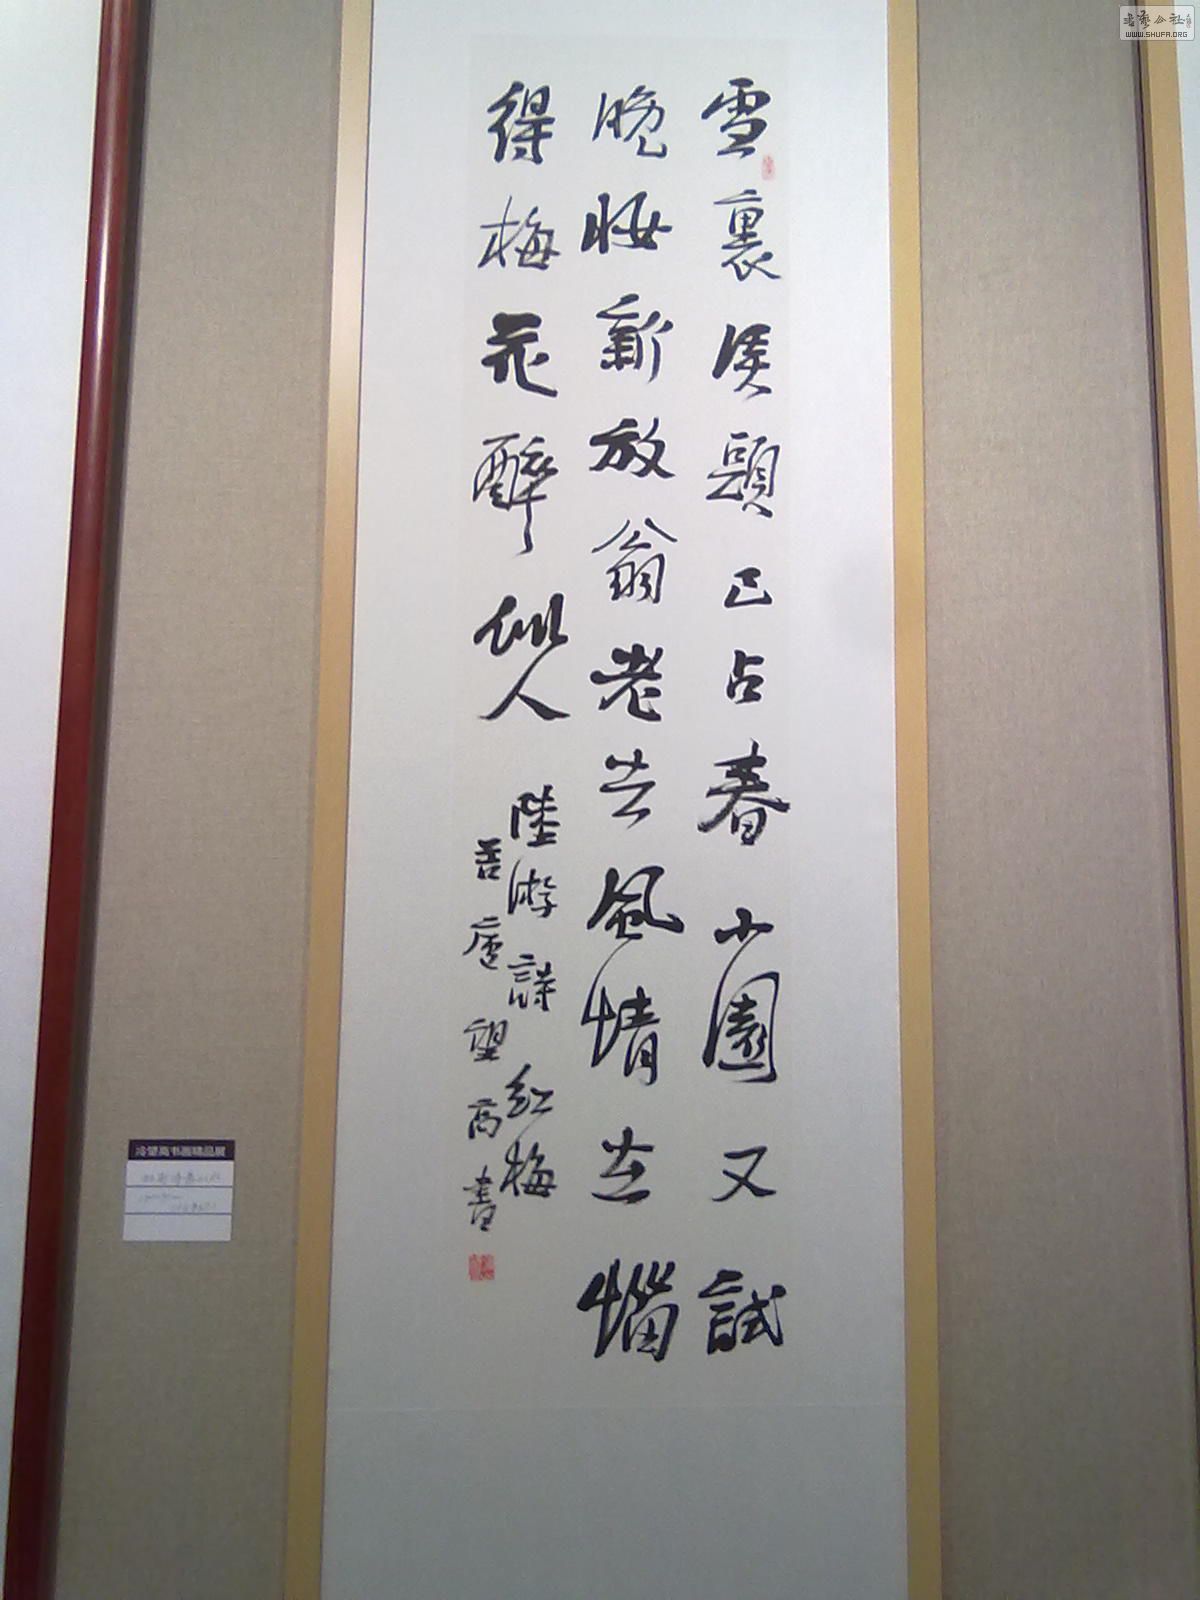 雪裏溪頭已占春小園又試
晚妝新放翁老去風情在惱
得梅花醉似人
陸游詩紅梅
吾廬望高書
冷望高书画精品展
书艺公社
WWW.SHUFA.ORG